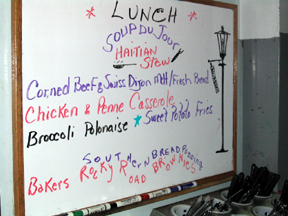 * LUNCH *
SOUP DU Jour
HAITIAN
STEW
Corned Beef & Swiss Dijon m/ Fresh Bread
Chicken & Penne Casserole
Broccoli Polonaise * Sweet Potato Fries
SOUTHERN BREAD Pudding
Bakers ROCKY ROAD BROWNIES